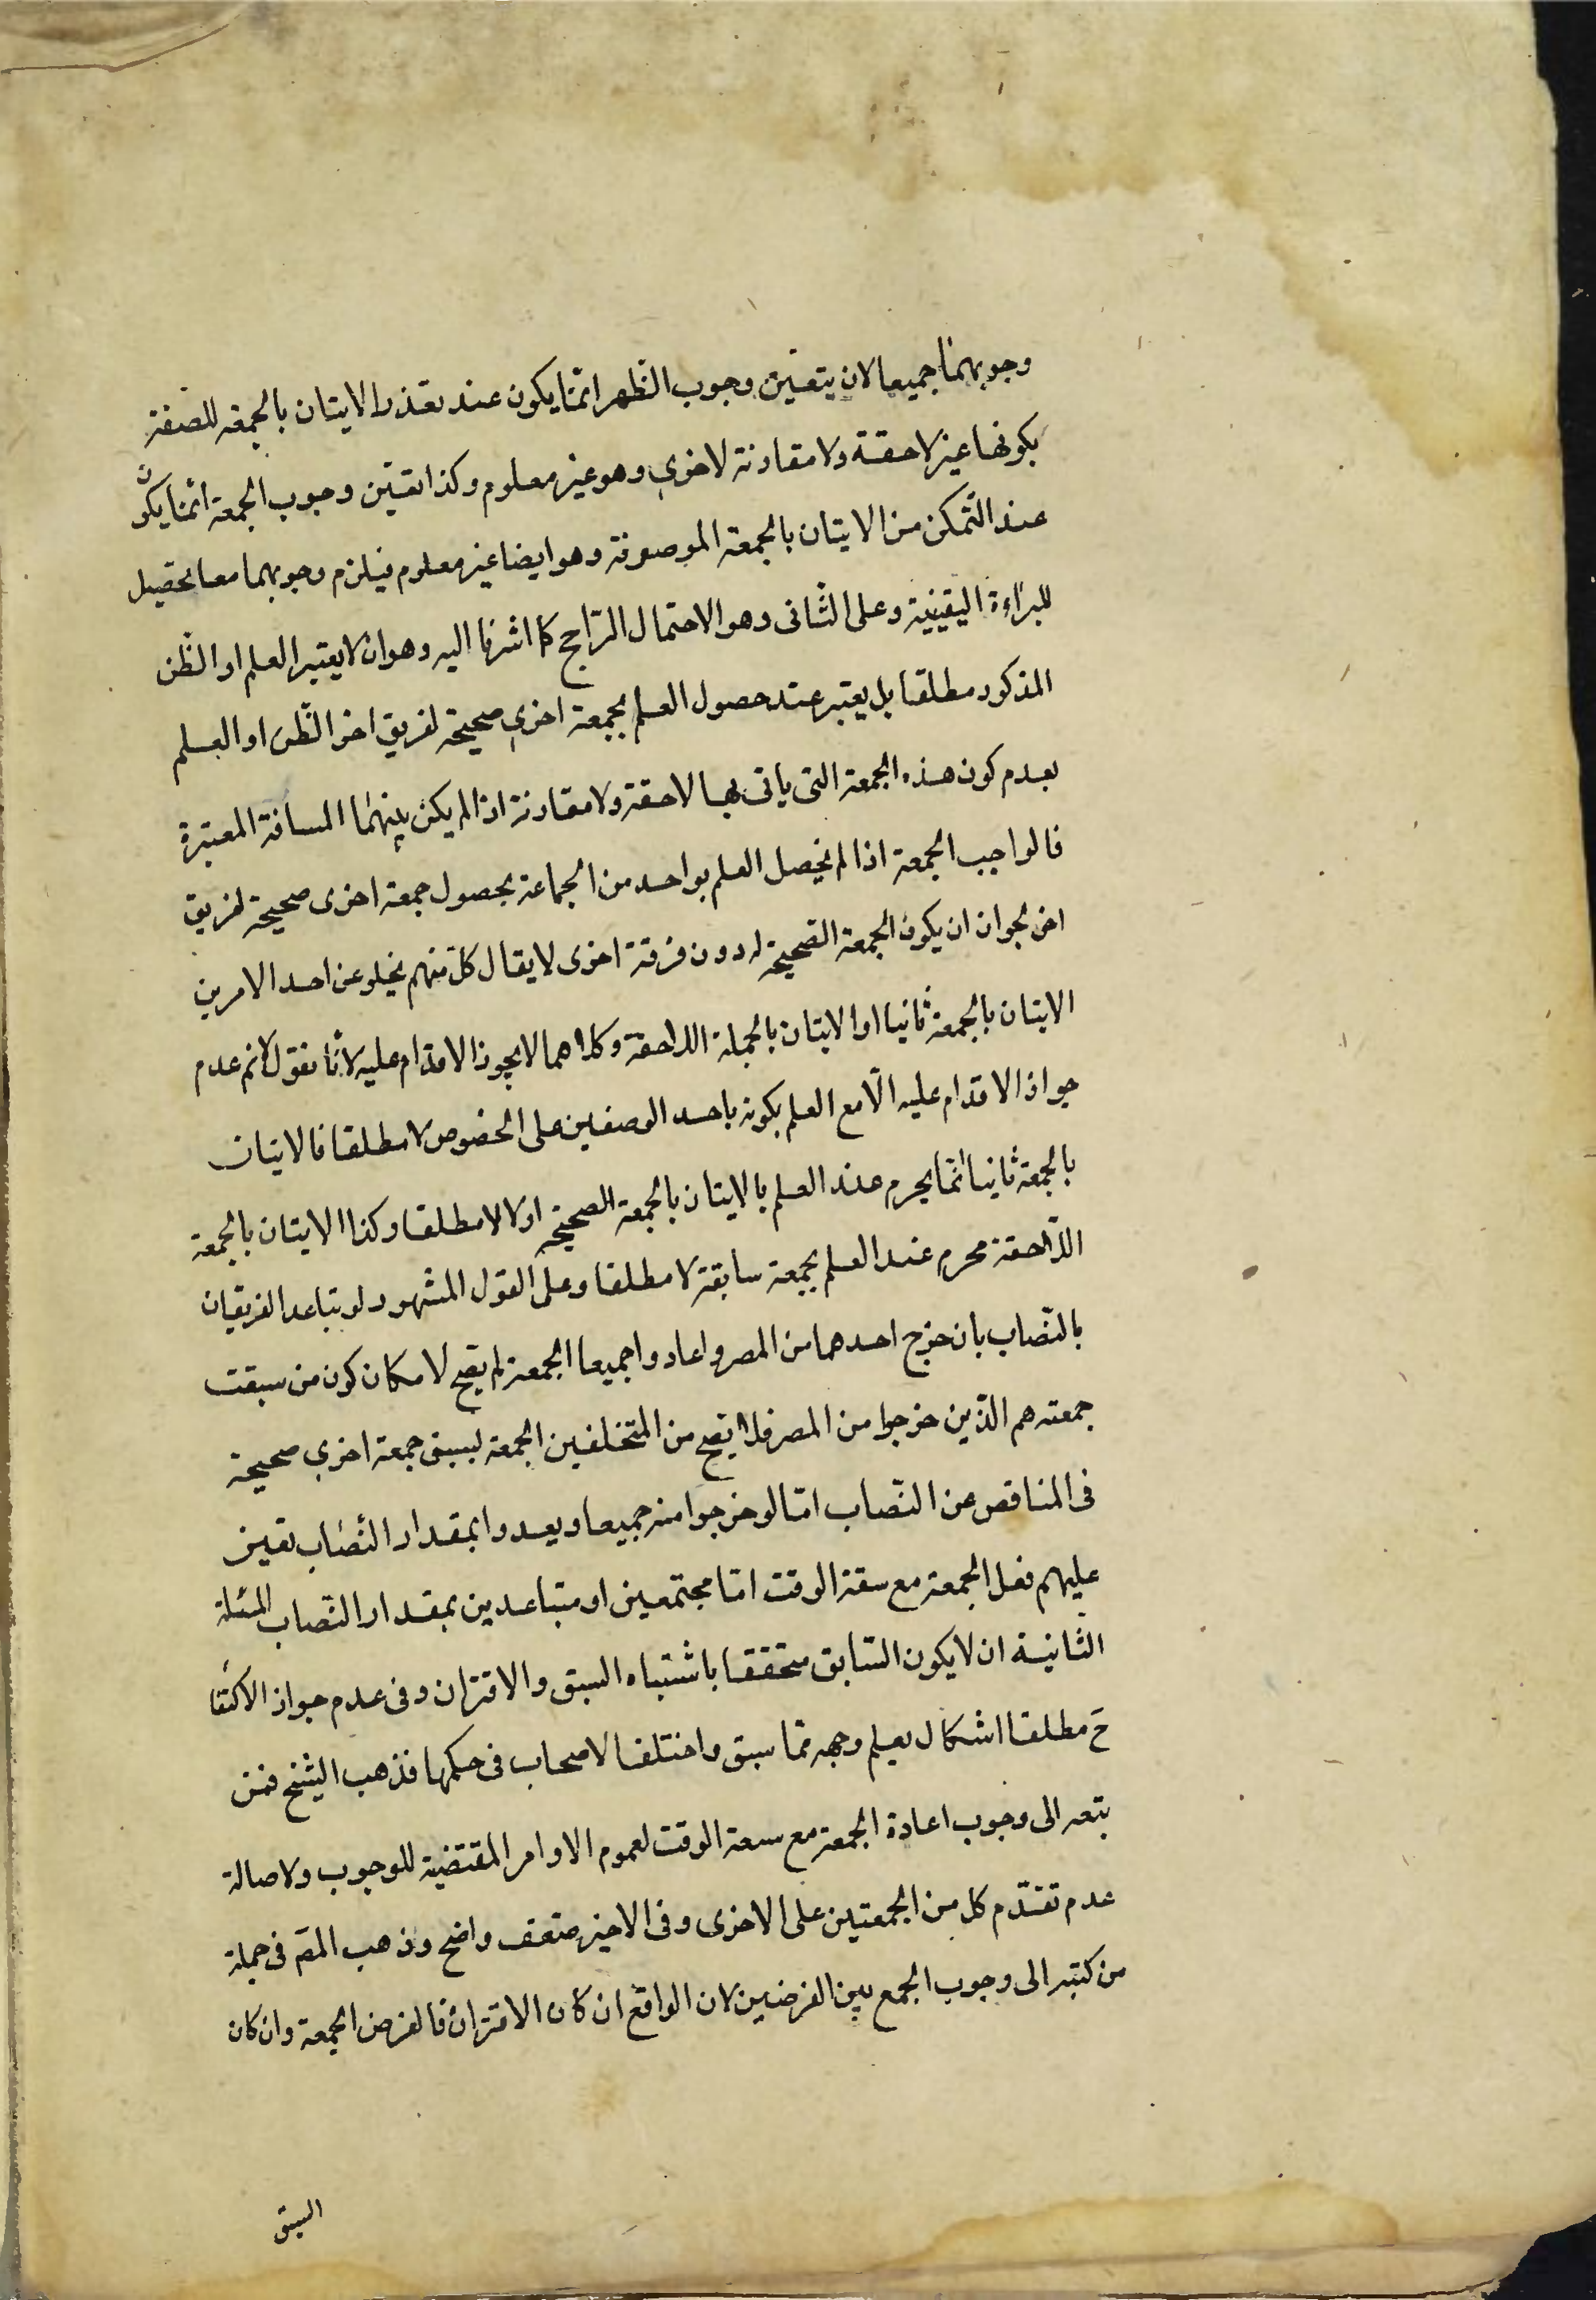 وجوبهما جميعا لان يتعين وجوب الظهر انما يكون عند تعذر الايتان بالجمعه للصفة
بكونها غير لاحقة ولا مقارنة لاخرى وهو غير معلوم وكذا تعين وجوب الجمعة انما يكون
عند التمكن من الايتان بالجمعة الموصوفة وهو ايضا غير معلوم فيلزم وجوبهما معا تحصيل
للبراءة اليقينية وعلى الثانى وهو الاحتمال الراجح كما اشرنا اليه وهو ان لا يعتبر العلم او الظن
المذكور مطلقا بل يعتبر عند حصول العلم بجمعة اخرى صحيحة لفريق اخر الظن او العلم
بعدم كون هذه الجمعة التى ياتى بها لاحقة ولا مقارنة اذا لم يكن بينهما المسافة المعتبرة
فالواجب الجمعة اذا لم يحصل العلم بواحد من الجماعة بحصول جمعة اخرى صحيحة لفريق
اخر لجواز ان يكون الجمعة الصحيحة له دون فرقة اخرى لا يقال كل منهم يخلو عن احد الامرين
الايتان بالجمعة ثانيا او الايتان بالجملة اللاحقة وكلاهما لا يجوز الاقدام عليه لانا نقول لانم عدم
جواز الاقدام عليه الا مع العلم بكونه باحد الوصفين على الخصوص لا مطلقا فالايتان
بالجمعة ثانيا انما يحرم عند العلم بالايتان بالجمعة الصحيحة اولا لا مطلقا وكذا الايتان بالجمعة
اللاحقة محرم عند العلم بجمعة سابقة لا مطلقا وعلى القول المشهور لو تباعد الفريقان
بالنصاب بان خرج احدهما من المصر واعادوا جميعا الجمعة لم يصح لامكان كون من سبقت
جمعته هم الذين خرجوا من المصر فلا يصح من المتخلفين الجمعة لسبق جمعة اخرى صحيحة
فى المناقص عن النصاب اما لو خرجوا منه جميعا وبعدوا بمقدار النصاب تعين
عليهم فعل الجمعة مع سعة الوقت اما مجتمعين او متباعدين بمقدار النصاب المسئلة
الثانية ان لا يكون السابق متحققا باشتباه السبق والاقتران وفى عدم جواز الاكتفا
ح مطلقا اشكال يعلم وجهه مما سبق واختلف الاصحاب فى حكمها فذهب الشيخ فمن
تبعه الى وجوب اعادة الجمعة مع سعة الوقت لعموم الاوامر المقتضية للوجوب ولاصالة
عدم تقدم كل من الجمعتين على الاخرى وفى الاخير ضعف واضح وذهب المص فى جملة
من كتبه الى وجوب الجمع بين الفرضين لان الواقع ان كان الاقتران فالفرض الجمعة وان كان
السبق